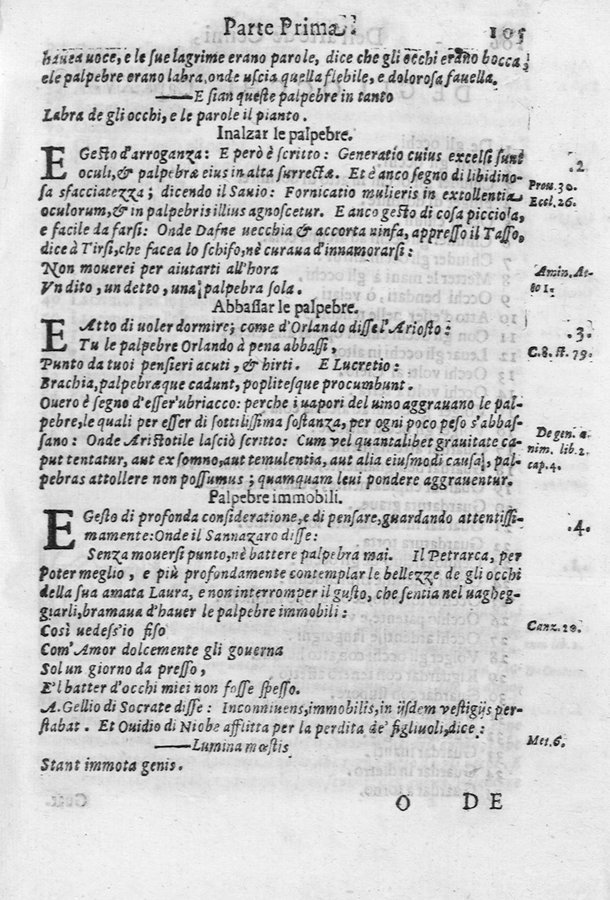 Parte Prima. 105
hauea uoce, e le sue lagrime erano parole, dice che gli occhi erano bocca,
e le palpebre erano labra, onde uscia quella flebile, e dolorosa fauella.
——E sian queste palpebre in tanto
Labra de gli occhi, e le parole il pianto.
Inalzar le palpebre.
E Gesto d'arroganza: E però è scritto: Generatio cuius excelsi sunt .2.
oculi, & palpebræ eius in alta surrectæ. Et è anco segno di libidino- Prou. 30.
sa sfacciatezza; dicendo il Sauio: Fornicatio mulieris in extollentia Eccl. 26.
oculorum, & in palpebris illius agnoscetur. E anco gesto di cosa picciola,
e facile da farsi: Onde Dafne uecchia & accorta ninfa, appresso il Tasso,
dice à Tirsi, che facea lo schifo, nè curaua d'innamorarsi:
Non mouerei per aiutarti all'hora Amin. At-
Vn dito, un detto, una palpebra sola. to 1.
Abbassar le palpebre.
E Atto di uoler dormire; come d'Orlando disse l'Ariosto: .3.
Tu le palpebre Orlando à pena abbassi, C. 8. st. 79.
Punto da tuoi pensieri acuti, & hirti. E Lucretio:
Brachia, palpebræque cadunt, poplitesque procumbunt.
Ouero è segno d'esser'ubriacco: perche i uapori del uino aggrauano le pal-
pebre, le quali per esser di sottilissima sostanza, per ogni poco peso s'abbas-
sano: Onde Aristotile lasciò scritto: Cum vel quantalibet grauitate ca- De gen. a
put tentatur, aut ex somno, aut temulentia, aut alia eiusmodi causa, pal- nim. lib. 2.
pebras attollere non possumus; quamquam leui pondere aggrauentur. cap. 4.
Palpebre immobili.
E Gesto di profonda consideratione, e di pensare, guardando attentissi- .4.
mamente: Onde il Sannazaro disse:
Senza mouersi punto, nè battere palpebra mai. Il Petrarca, per
poter meglio, e più profondamente contemplar le bellezze de gli occhi
della sua amata Laura, e non interromper il gusto, che sentia nel uagheg-
giarli, bramaua d'hauer le palpebre immobili:
Così uedess'io fiso Canz. 20.
Com'Amor dolcemente gli gouerna
Sol un giorno da presso,
E'l batter d'occhi miei non fosse spesso.
A. Gellio di Socrate disse: Inconniuens, immobilis, in ijsdem vestigijs per-
stabat. Et Ouidio di Niobe afflitta per la perdita de' figliuoli, dice:
——Lumina mœstis Met. 6.
Stant immota genis.
O DE